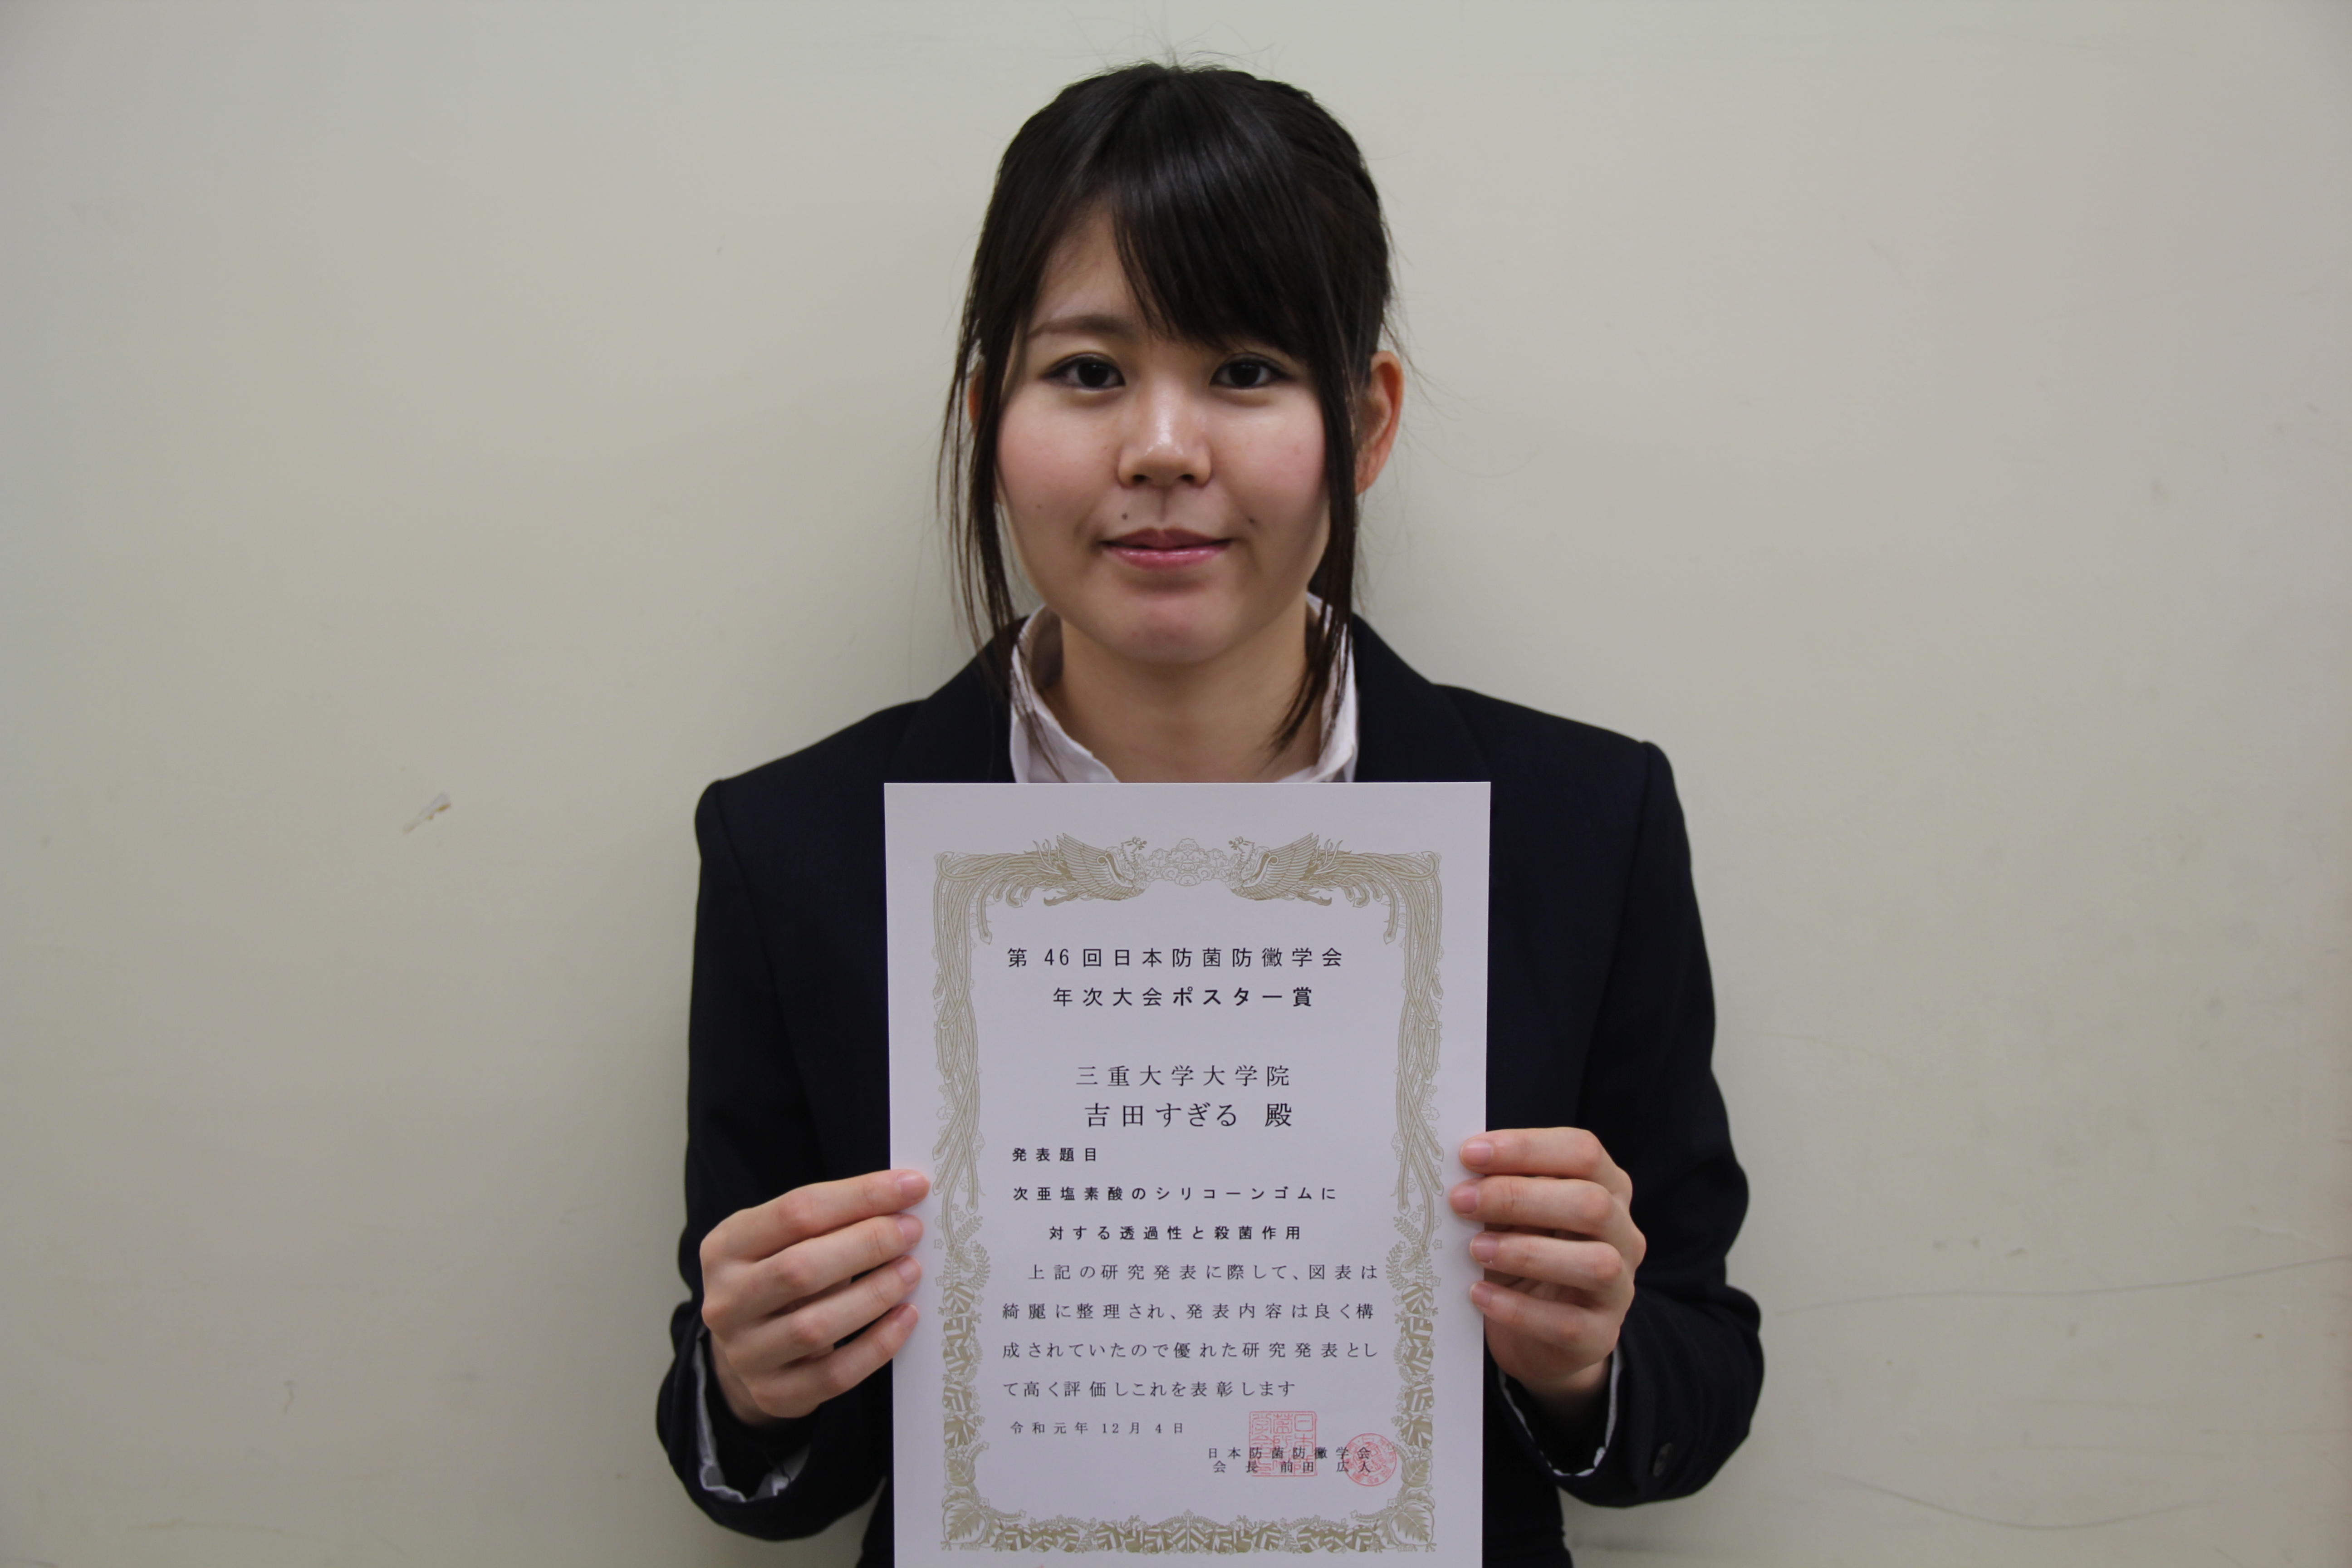 第46回日本防菌防黴学会
年次大会ポスター賞
三重大学大学院
吉田すぎる 殿
発表題目
次亜塩素酸のシリコーンゴムに
対する透過性と殺菌作用
上記の研究発表に際して、図表は
綺麗に整理され、発表内容は良く構
成されていたので優れた研究発表とし
て高く評価しこれを表彰します
令和元年12月4日
日本防菌防黴学会
会長 前田広人